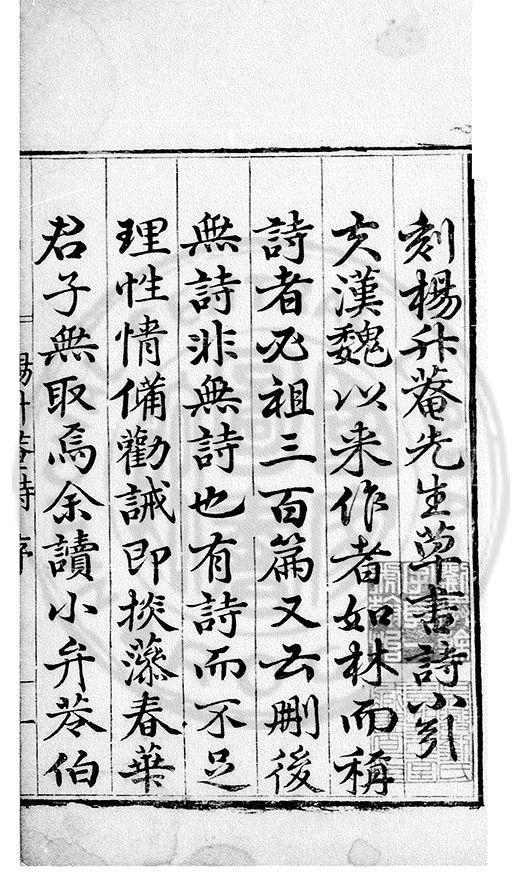 刻楊升菴先生草書詩小引
夫漢魏以来作者如林而稱
詩者必祖三百篇又云刪後
無詩非無詩也有詩而不足
理性情備勸誡即掞藻春華
君子無取焉余讀小弁巷伯